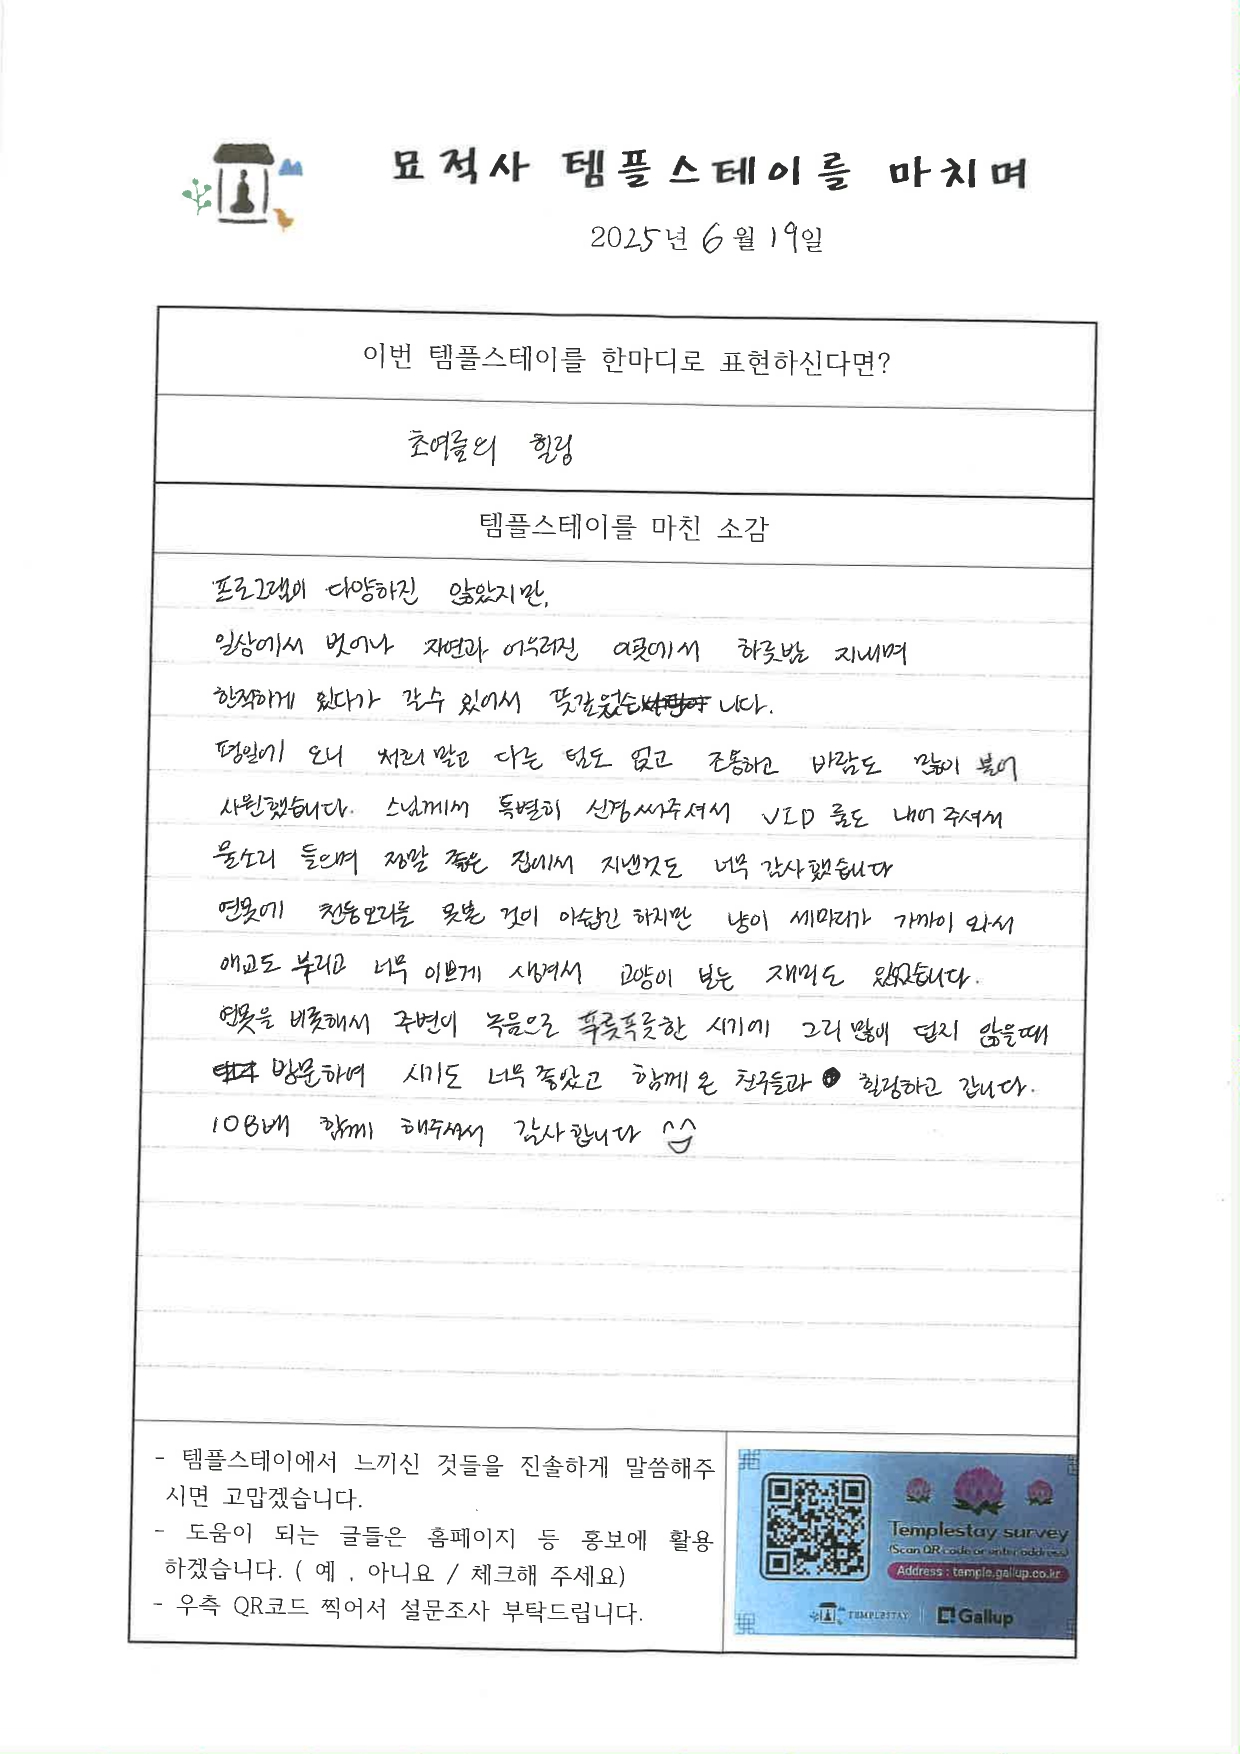 묘적사 템플스테이를 마치며
2025년 6월 19일
이번 템플스테이를 한마디로 표현하신다면?
초여름의 힐링
템플스테이를 마친 소감
프로그램이 다양하진 않았지만,
일상에서 벗어나 자연과 어우러진 이곳에서 하룻밤 지내며
한적하게 있다가 갈수 있어서 뜻깊었습니다.
평일에 오니 저희 말고 다른 팀도 없고 조용하고 바람도 많이 불어
시원했습니다. 스님께서 특별히 신경써주셔서 VIP 룸도 내어 주셔서
물소리 들으며 정말 좋은 집에서 지낸것도 너무 감사했습니다
연못에 천둥오리를 못본 것이 아쉽긴 하지만 냥이 세마리가 가까이 와서
애교도 부리고 너무 이쁘게 생겨서 고양이 보는 재미도 있었습니다.
연못을 비롯해서 주변이 녹음으로 푸릇푸릇한 시기에 그리 많이 덥지 않을때
방문하여 시기도 너무 좋았고 함께 온 친구들과 힐링하고 갑니다.
108배 함께 해주셔서 감사합니다 ^^
- 템플스테이에서 느끼신 것들을 진솔하게 말씀해주
시면 고맙겠습니다.
- 도움이 되는 글들은 홈페이지 등 홍보에 활용
하겠습니다. ( 예 , 아니요 / 체크해 주세요)
- 우측 QR코드 찍어서 설문조사 부탁드립니다.
Templestay survey
(Scan QR code or enter address)
Address : temple.gallup.co.kr
TEMPLESTAY
Gallup